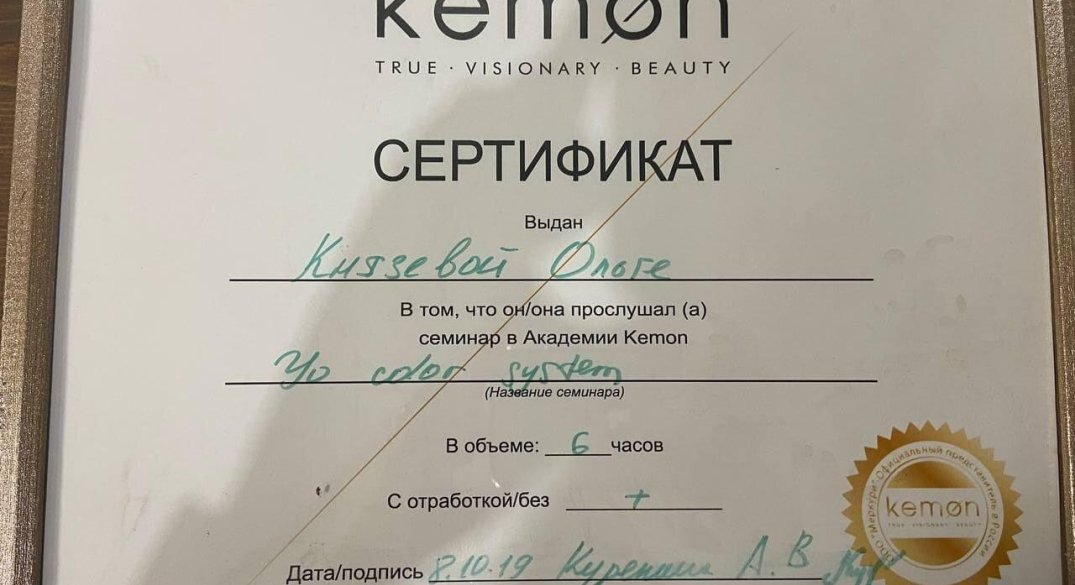 kemøn
TRUE · VISIONARY · BEAUTY
СЕРТИФИКАТ
Выдан
Князевой Ольге
В том, что он/она прослушал (а)
семинар в Академии Kemon
Yo color system
(Название семинара)
В объеме: 6 часов
С отработкой/без +
Дата/подпись 8.10.19 А. В
ООО "Меркури" Официальный представитель в России
kemøn
TRUE · VISIONARY · BEAUTY